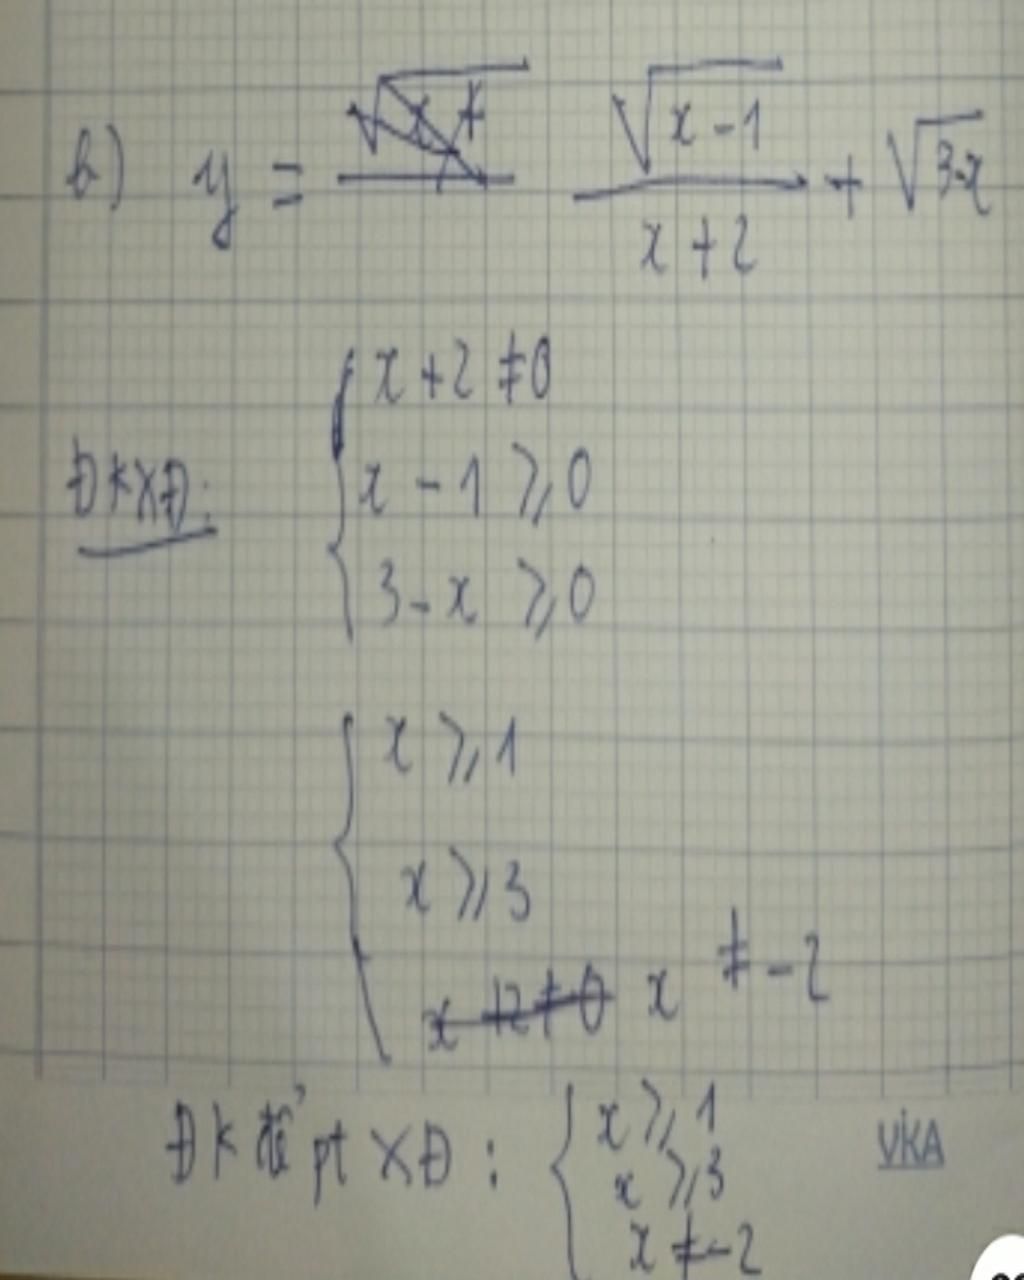 b) y = √(x-1)/(x+2) + √(3-x)
ĐKXĐ: { x+2 ≠ 0
x - 1 ⩾ 0
3 - x ⩾ 0
{ x ⩾ 1
x ⩾ 3
x ≠ -2
ĐK để pt XĐ: { x ⩾ 1
x ⩾ 3
x ≠ -2
VKA